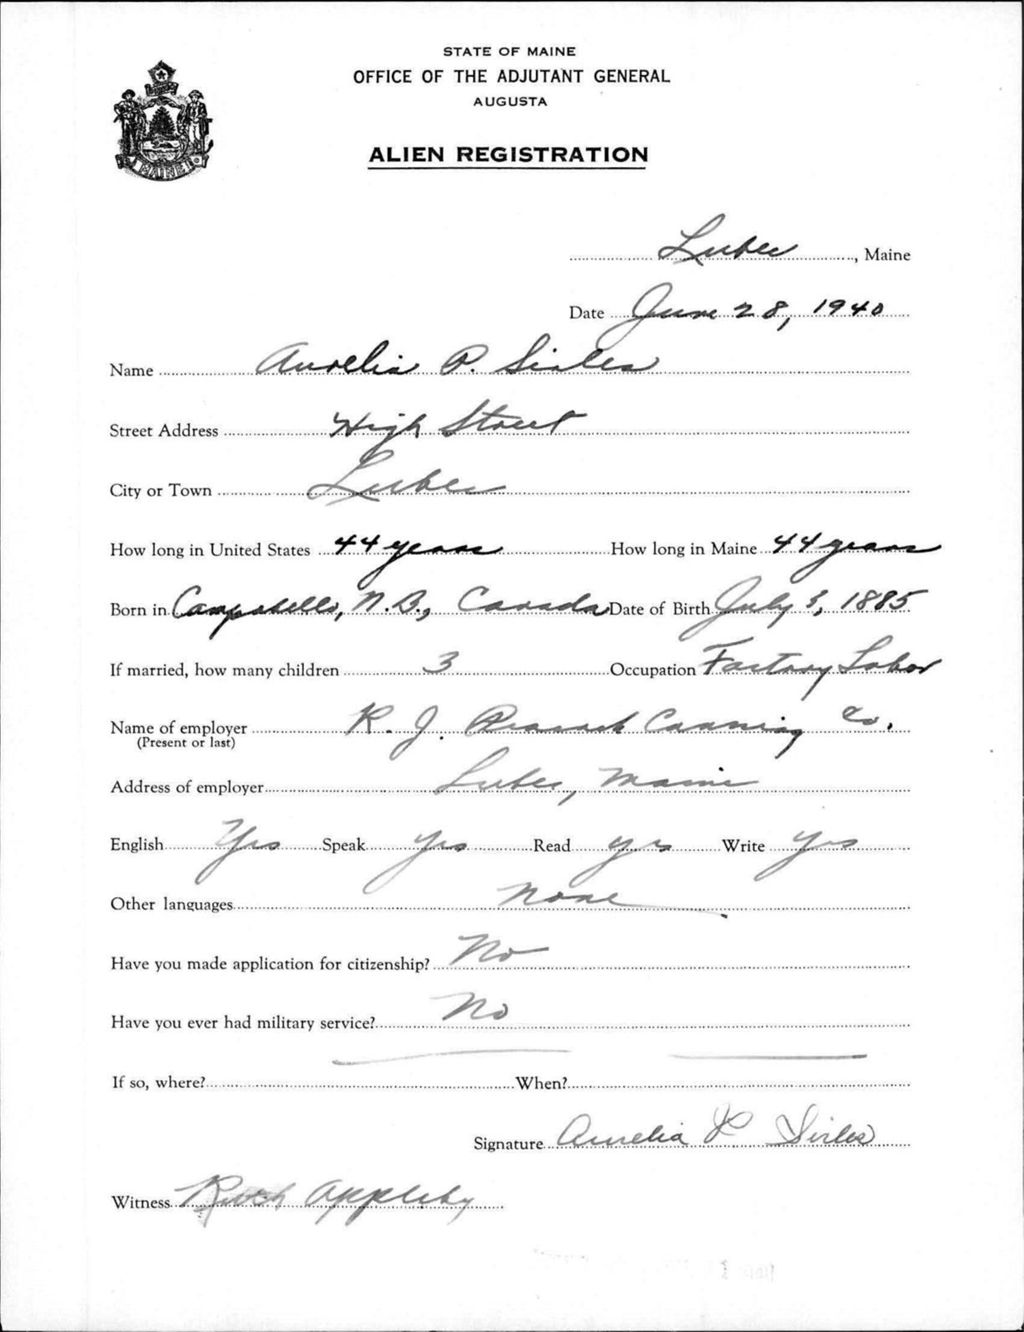 STATE OF MAINE
OFFICE OF THE ADJUTANT GENERAL
AUGUSTA
ALIEN REGISTRATION
MAINE
Lubec, Maine
Date June 28, 1940
Name Aurelia P. Sirles
Street Address High Street
City or Town Lubec
How long in United States 44 years How long in Maine 44 years
Born in Campobello, N.B., Canada Date of Birth July 3, 1885
If married, how many children 3 Occupation Factory Labor
Name of employer R. J. Peacock Canning Co.
(Present or last)
Address of employer Lubec, Maine
English Yes Speak yes Read yes Write Yes
Other languages None
Have you made application for citizenship? No
Have you ever had military service? No
If so, where? When?
Signature Aurelia P Sirles
Witness Ruth Appleby